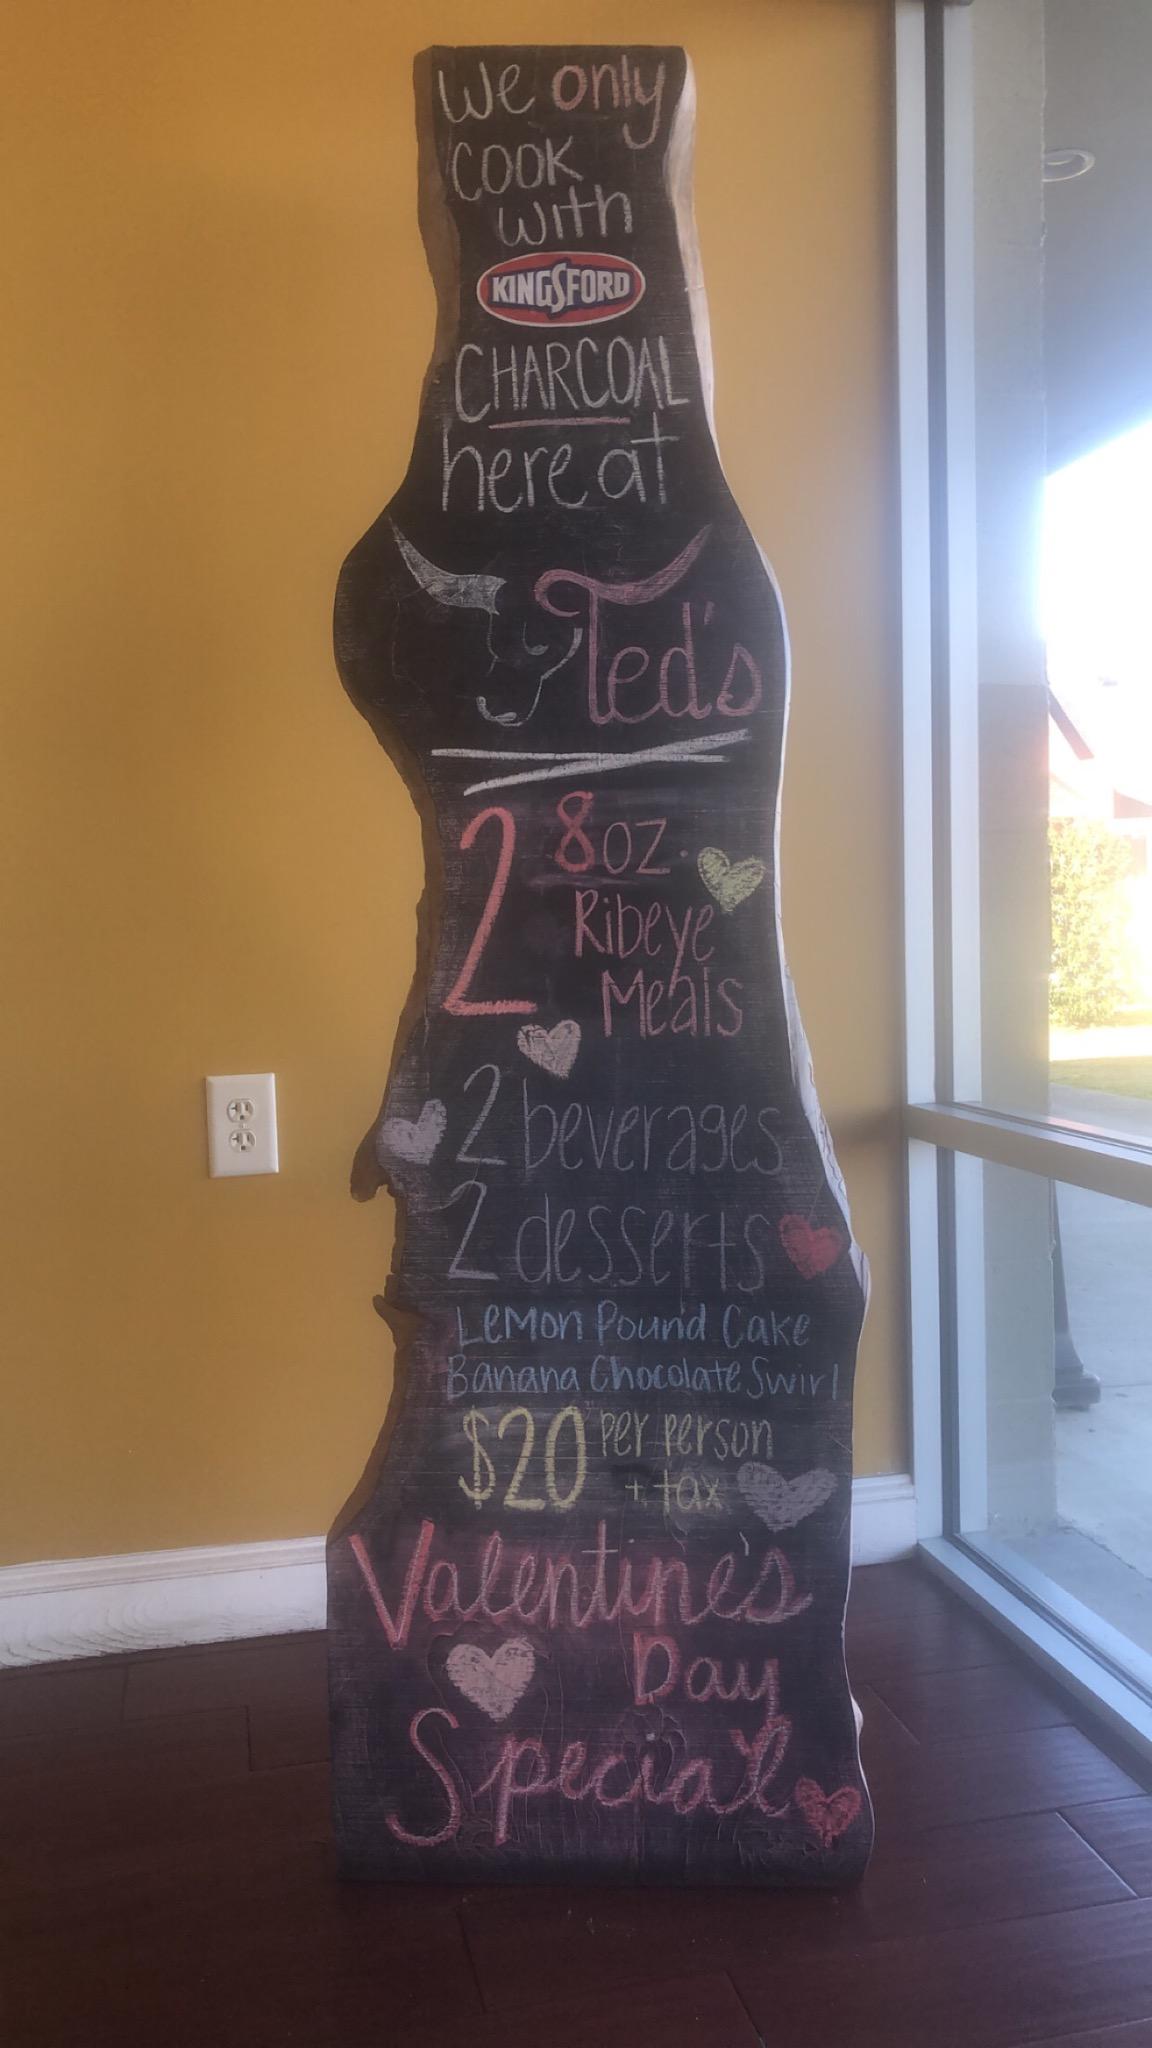 We only
COOK
with
KINGSFORD
CHARCOAL
here at
Ted's
2 8oz.
Ribeye
Meals
2 beverages
2 desserts
Lemon Pound Cake
Banana Chocolate Swirl
$20 per person
+ tax
Valentine's
Day
Special